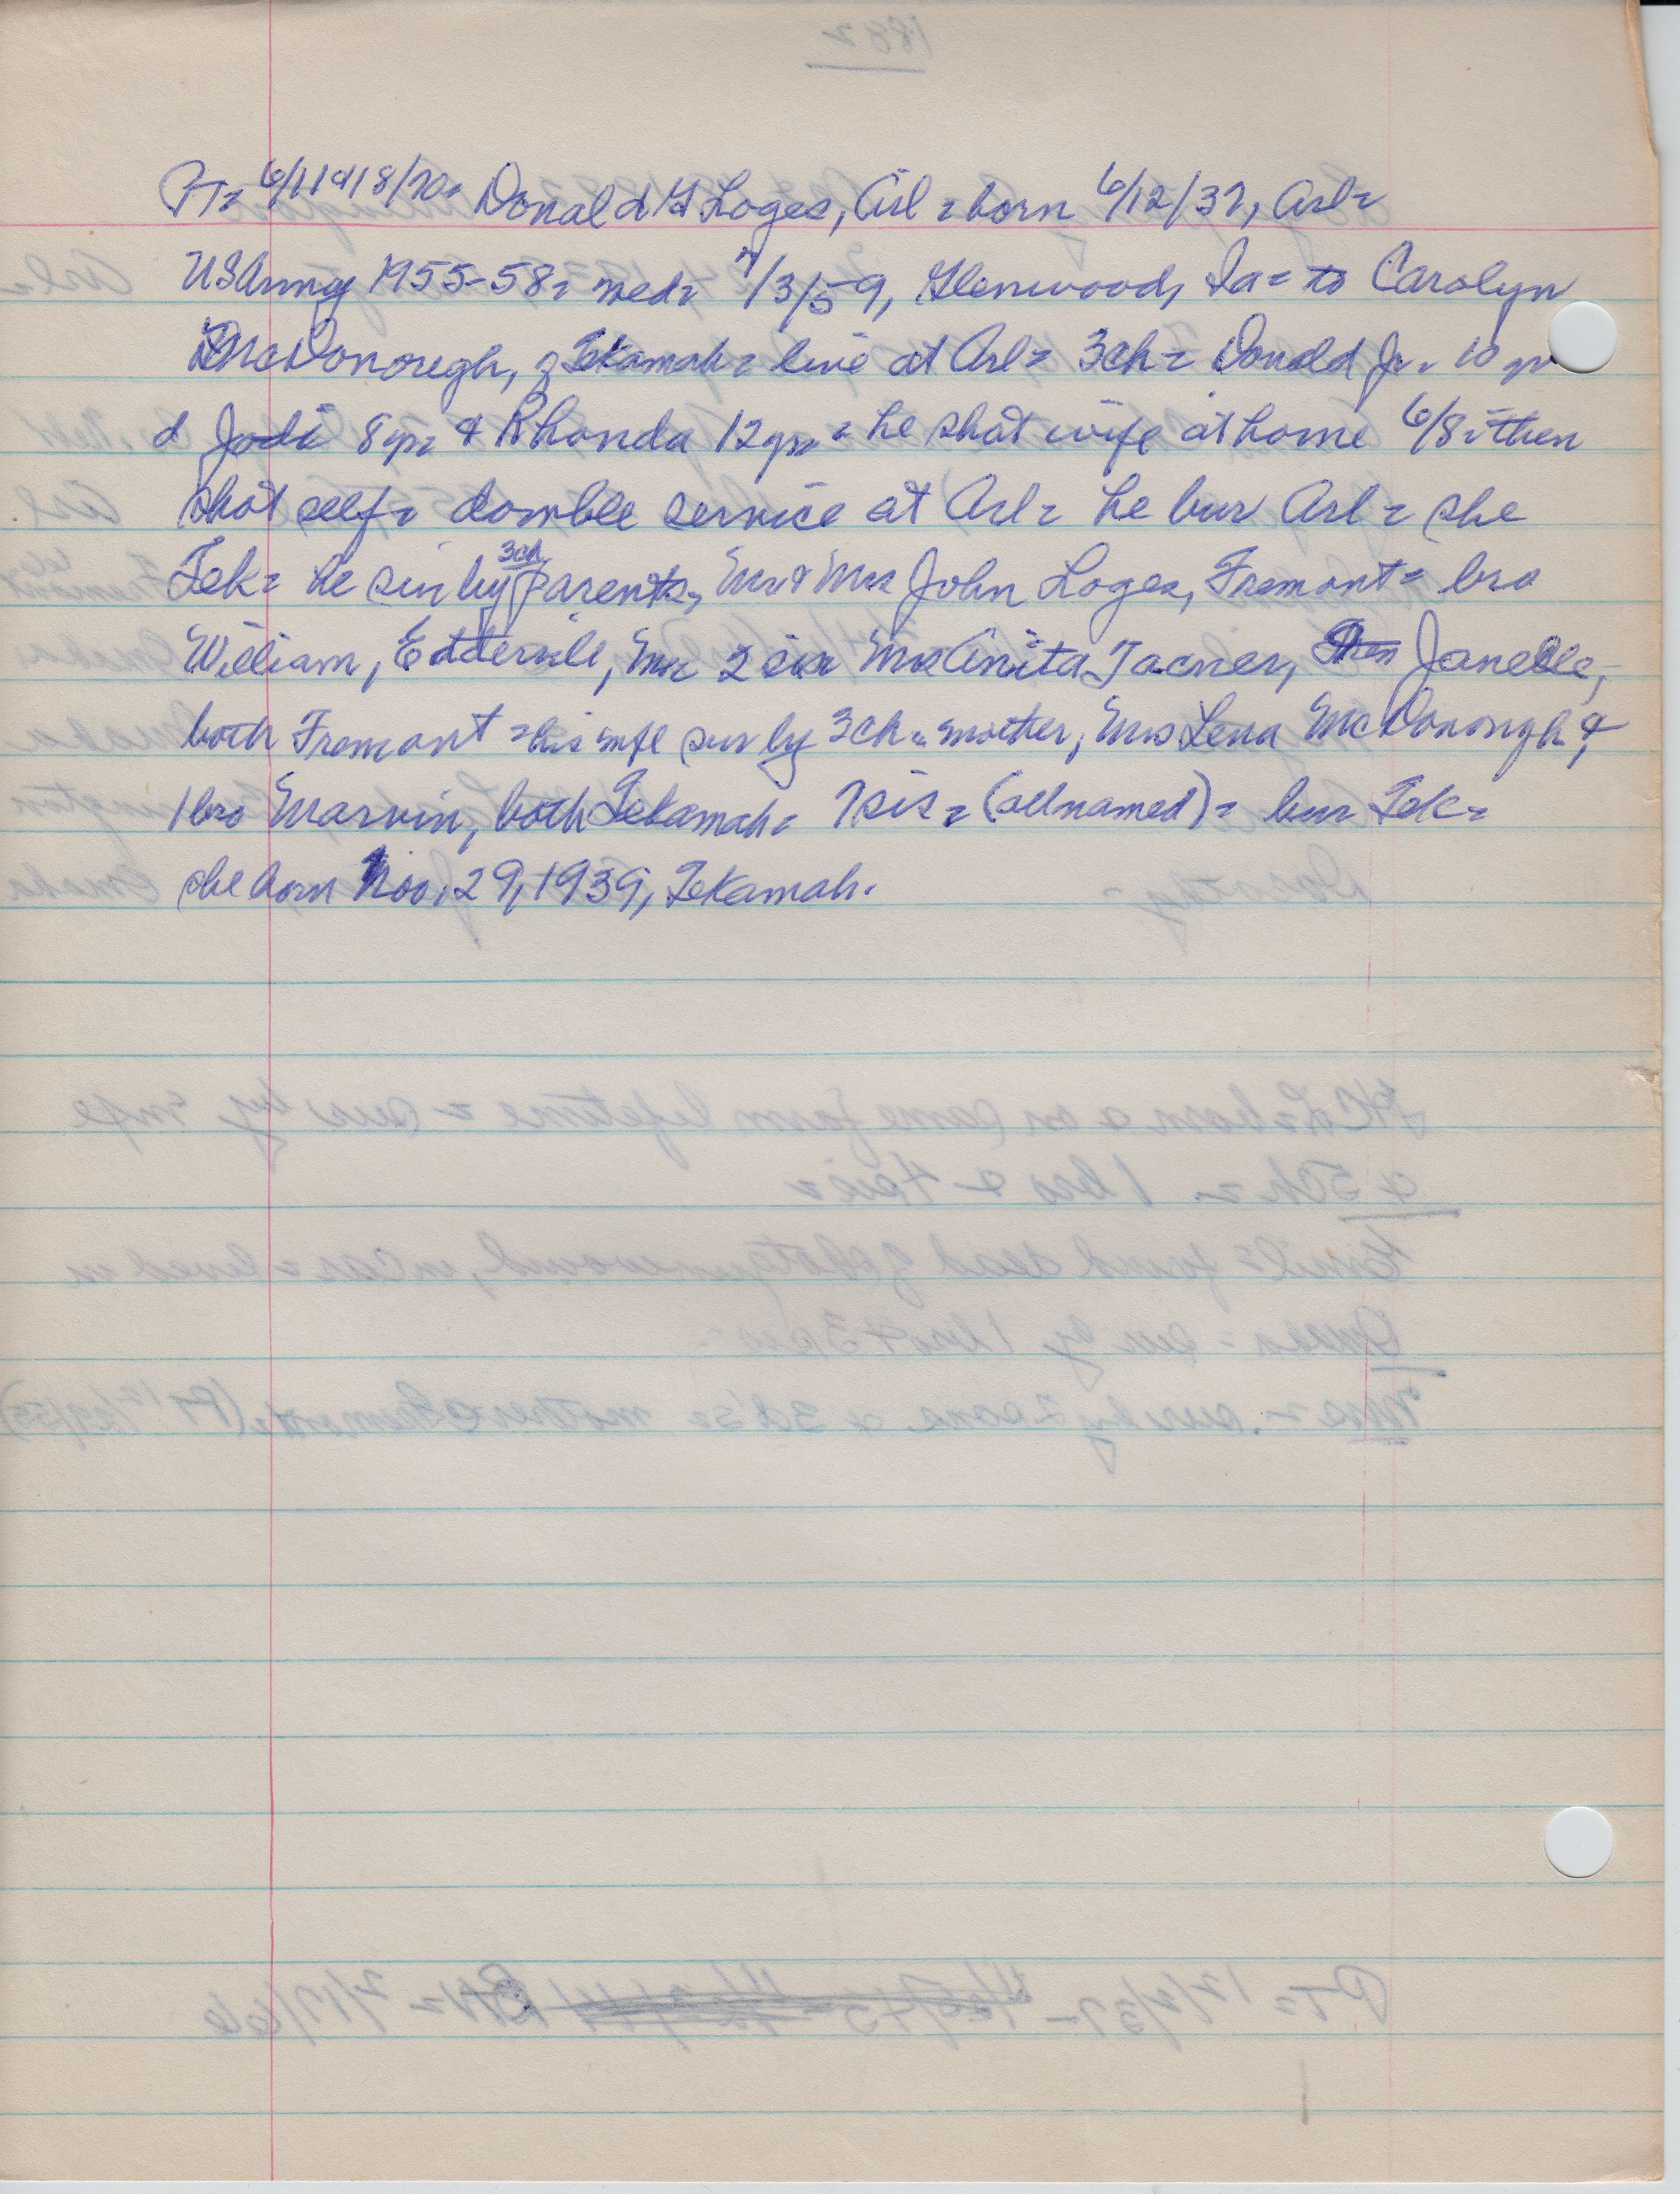 PT= 6/11 & 18/70= Donald G Loges, Arl = born 6/12/37, Arl=
US Army 1955-58= wed= 7/3/59, Glenwood, Ia= to Carolyn
McDonough, of Tekamah= live at Arl= 3ch= Donald Jr. 10 yr
d Jodi 8yr= & Rhonda 12yr= = he shot wife at home 6/8 = then
shot self= double service at Arl= he bur Arl = she
Tek= he sur by 3ch parents, Mr & Mrs John Loges, Fremont= bro
William, 2 sis Mrs Anita Janelle,
both Fremont = his wife sur by 3ch= mother, Mrs Lena McDonough &
1 bro Marvin, both Tekamah= 7 sis= (all named)= bur Tek=
she born Nov. 29, 1939, Tekamah.